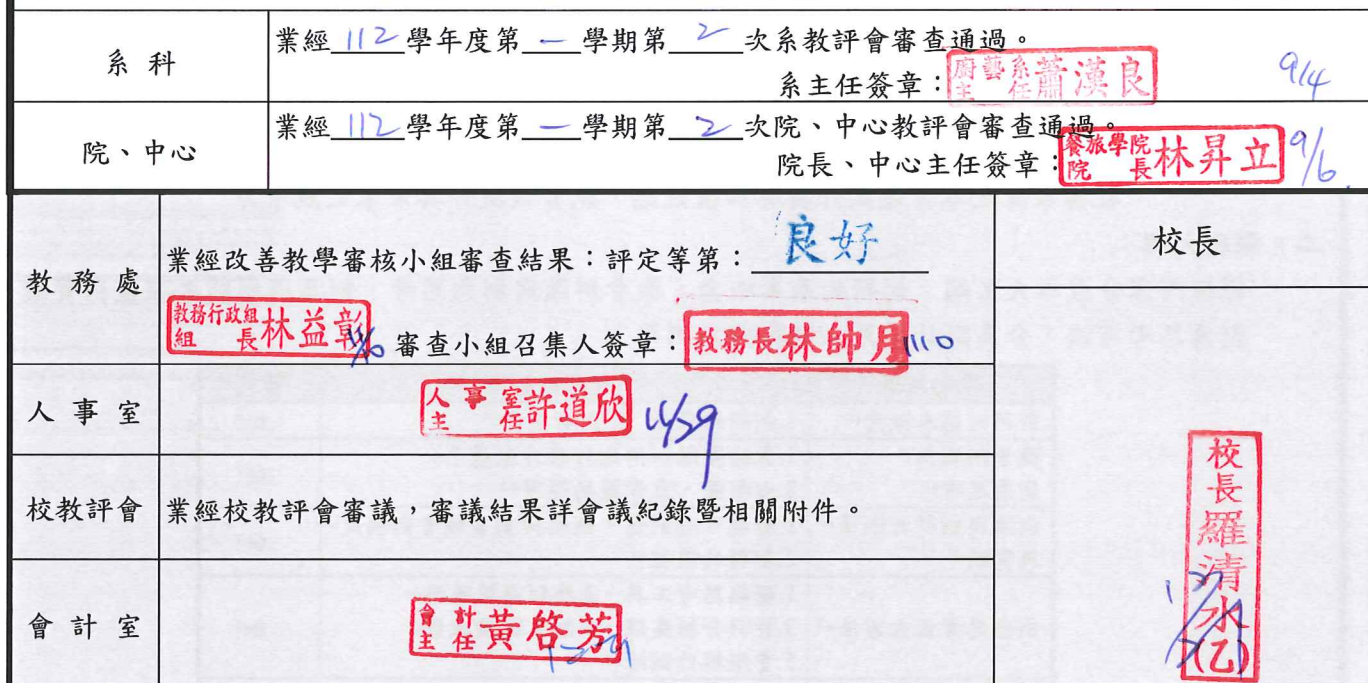 系 科
業經 112 學年度第 一 學期第 2 次系教評會審查通過。
系主任簽章：廚藝系主任蕭漢良 9/4
院、中心
業經 112 學年度第 一 學期第 2 次院、中心教評會審查通過。
院長、中心主任簽章：餐旅學院院長林昇立 9/6
教 務 處
業經改善教學審核小組審查結果：評定等第：良好
教務行政組組長林益彰 審查小組召集人簽章：教務長林帥月 1110
校長
人 事 室
人事室主任許道欣
校教評會
業經校教評會審議，審議結果詳會議紀錄暨相關附件。
會 計 室
會計主任黃啓芳
校長羅清水(乙)